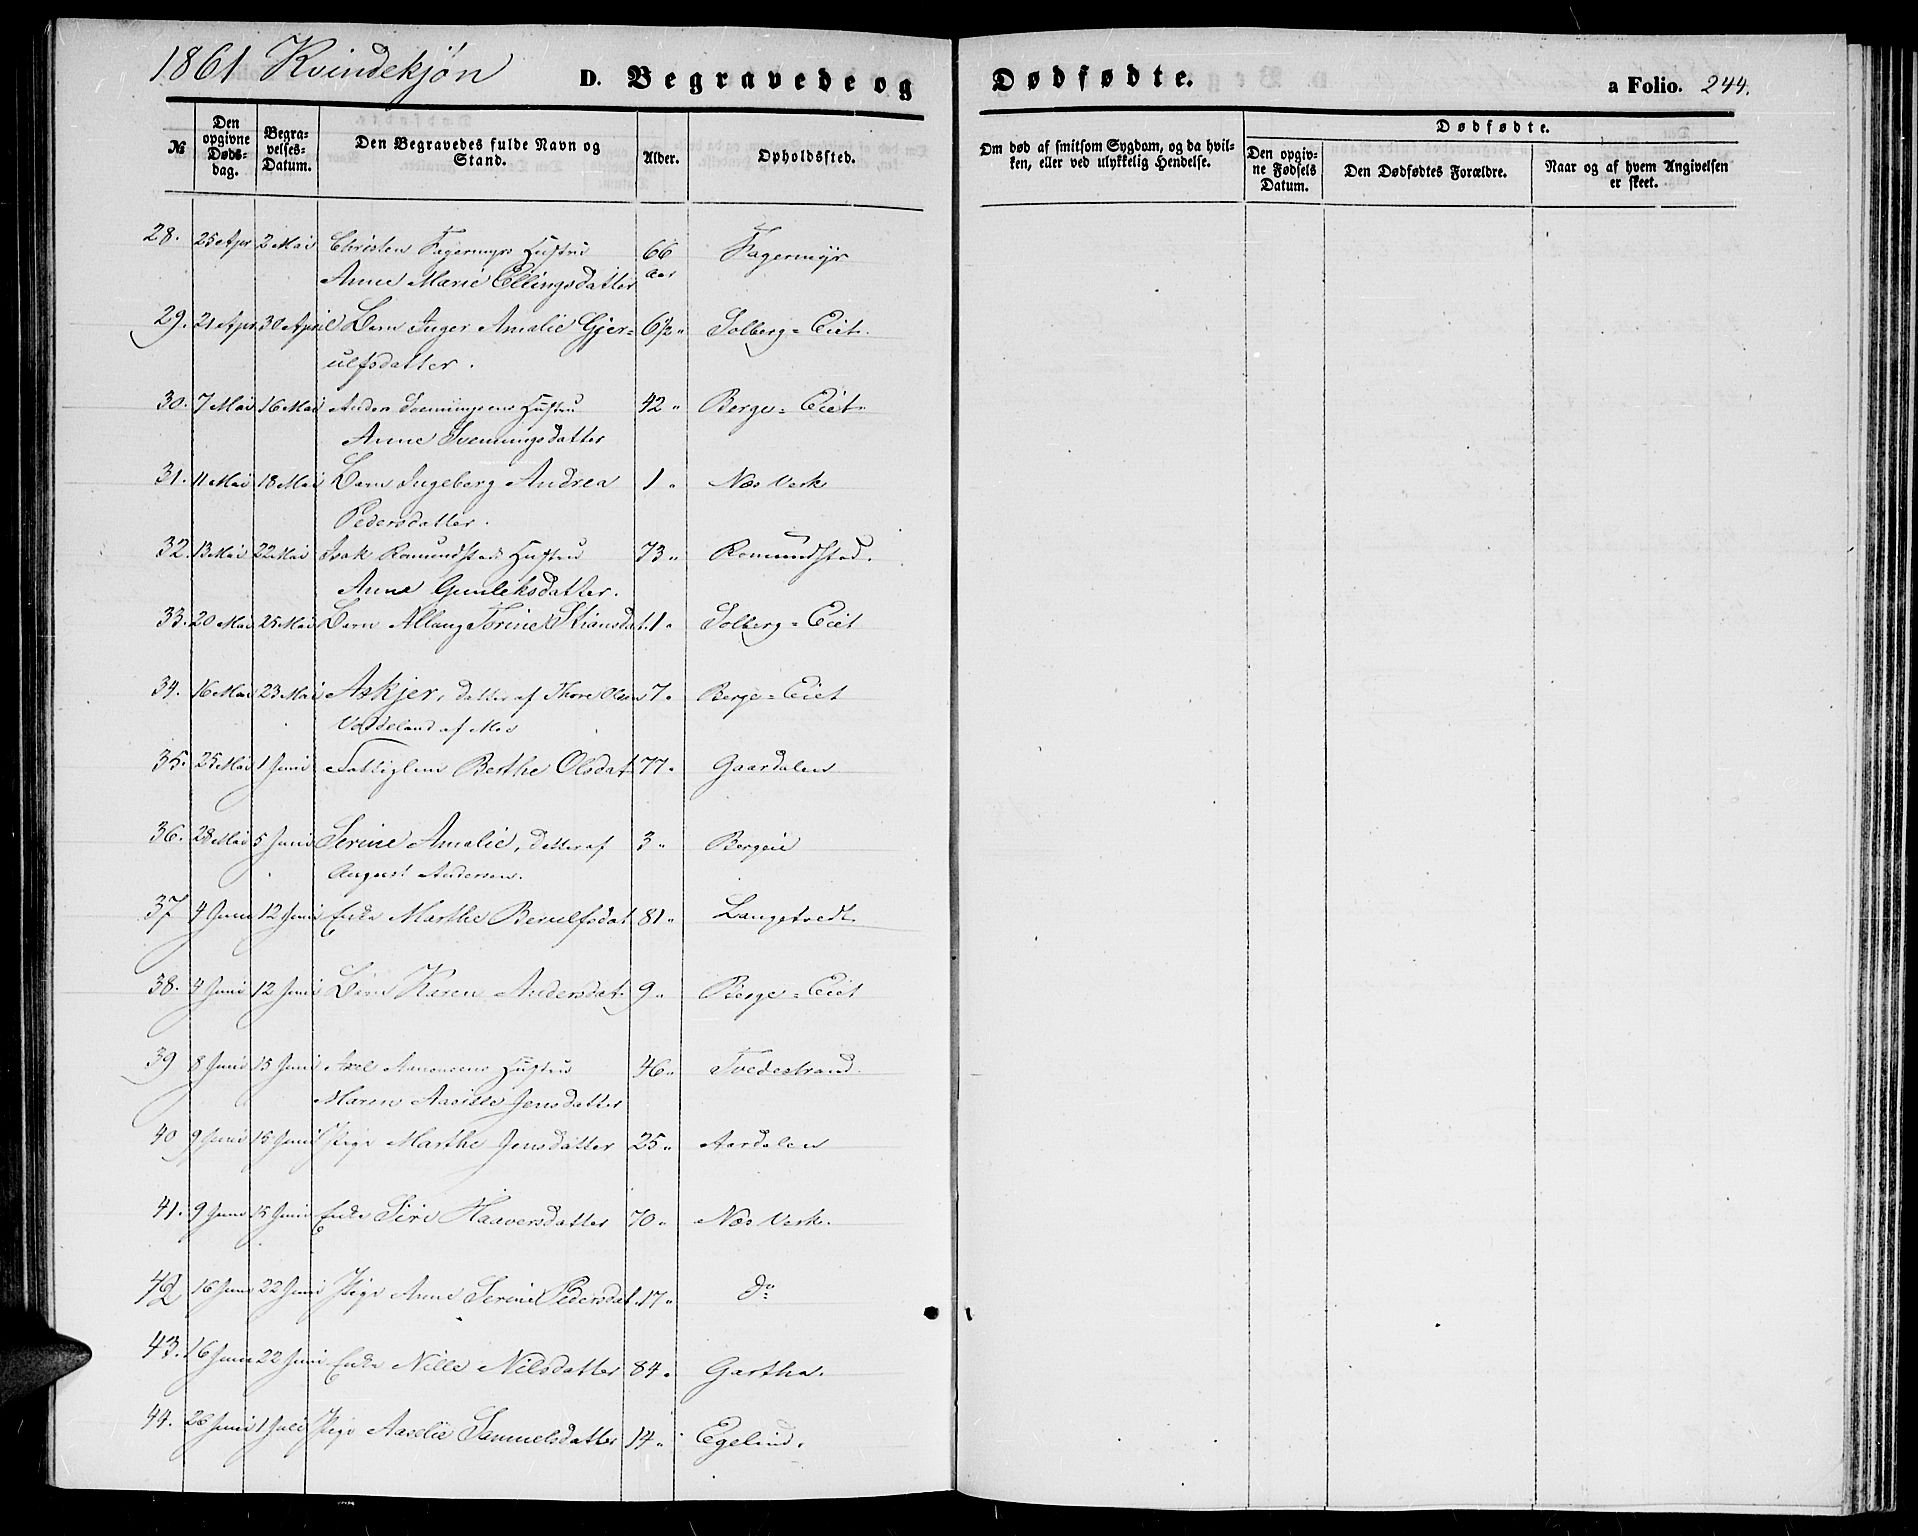 1861 Kvindekjøn D. Begravede og Dødfødte. a Folio. 244.
№ Den opgivne Døds-dag. Begra-velses-Datum. Den Begravedes fulde Navn og Stand. Alder. Opholdssted. Om død af smitsom Sygdom, og da hvil-ken, eller ved ulykkelig Hendelse. Dødfødte. Den opgiv-ne Fødsels Datum. Den Dødfødtes Forældre. Naar og af hvem Angivelsen er skeet.
28. 25 Apr 2 Mai Christen Fagermyrs Hustru 66 Fagermyr
Anne Marie Ellingsdatter aar
29. 21 Apr 30 April Barn Inger Amalie Gjer= 6½ " Solberg=Eiet.
ulfsdatter.
30. 7 Mai 16 Mai Anders Svenningsens Hustru 42 " Berge=Eiet
Anne Svenningsdatter
31. 11 Mai 18 Mai Barn Ingeborg Andrea 1 " Næs Verk
Pedersdatter.
32. 13 Mai 22 Mai Isak Romundstads Hustru 73 " Romundstad.
Anne Gunleksdatter.
33. 20 Mai 25 Mai Barn Allaug Torine Stiansdat. 1 " Solberg=Eiet
34. 16 Mai 23 Mai Askjer, Datter af Thore Olsen 7 " Berge=Eiet
Vaddeland af Moe
35. 25 Mai 1 Juni Fattiglem Berthe Olsdat 77 " Gaardalen
36. 28 Mai 5 Juni Serine Amalie, Datter af 3 " Bergeie
August Andersen.
37 4 Juni 12 Juni Enke Marthe Berulfsdat 81 " Langetvedt
38. 4 Juni 12 Juni Barn Karen Andersdat. 9 " Berge=Eiet
39 8 Juni 15 Juni Axel Aanonsens Hustru 46 " Tvedestrand.
Maren Aasille Jensdatter
40 9 Juni 15 Juni Pige Marthe Jensdatter 25 " Aardalen
41. 9 Juni 15 Juni Enke Siri Haaversdatter 70 " Næs Verk.
42 16 Juni 22 Juni Pige Anne Serine Pedersdat. 17 " do
43. 16 Juni 22 Juni Enke Nille Nilsdatter 84 " Gartha.
44. 26 Juni 1 Juli Pige Aaselie Samuelsdatter 14 " Egelind.